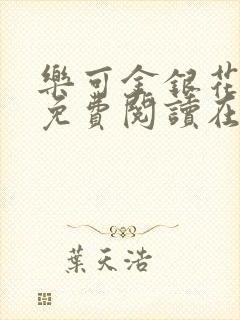 樂可金銀花
免費閱讀在
葉天浩